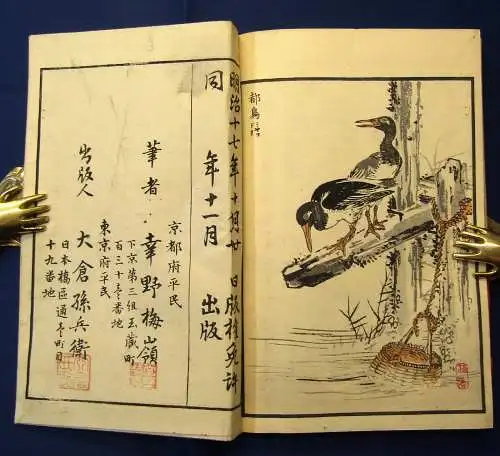 明治十七年十月廿 日版権免許
同 年十一月 出版
京都府平民
筆者 幸野楳嶺
下京第三組玉蔵町
百三十壱番地
東京府平民
出版人 大倉孫兵衛
日本橋區通壱町目
十九番地
都鳥